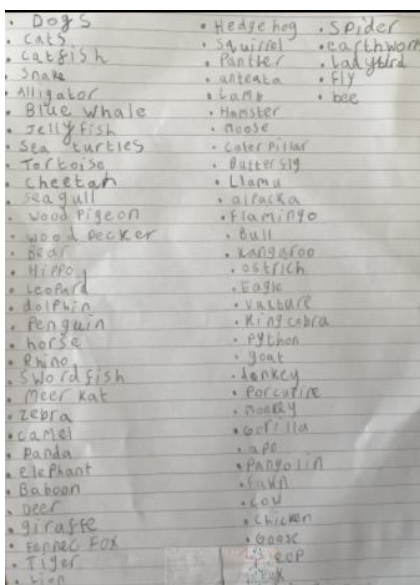 • Dogs
• Cats
• Catfish
• Snake
• Alligator
• Blue whale
• Jelly fish
• Sea turtles
• Tortoise
• Cheetah
• seagull
• wood Pigeon
• wood Pecker
• Bear
• Hippo
• Leopard
• dolphin
• Penguin
• horse
• Rhino
• Swordfish
• Meer kat
• Zebra
• camel
• Panda
• elephant
• Baboon
• Deer
• giraffe
• Fennec Fox
• Tiger
• Lion
• Hedgehog
• Squirrel
• Panther
• anteata
• Lamb
• Hamster
• Moose
• Cater Pillar
• Butterfly
• Llama
• alpacka
• Flamingo
• Bull
• kangaroo
• ostrich
• Eagle
• Vulture
• King cobra
• Python
• goat
• donkey
• Porcupine
• monkey
• Gorilla
• ape
• Pangolin
• Fawn
• Cow
• Chicken
• Goose
• Spider
• earthworm
• Ladybird
• Fly
• bee